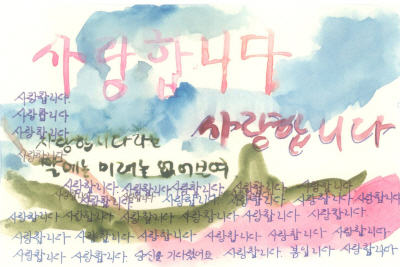 사랑합니다
사랑합니다
사랑합니다
사랑합니다
사랑합니다
사랑합니다
사랑합니다라는
말에는 미래는 없어브여
사랑합니다 사랑합니다 사랑합니다 사랑합니다 사랑합니다
사랑합니다 사랑합니다 사랑합니다 사랑합니다 사랑합니다
사랑합니다 사랑합니다 사랑합니다 사랑합니다 사랑합니다 사랑합니다
사랑합니다 사랑합니다 사랑합니다 사랑합니다 사랑합니다 사랑합니다 사랑합니다
사랑합니다 사랑합니다 당신을 기다렸어요 사랑합니다 봄입니다 사랑합니다